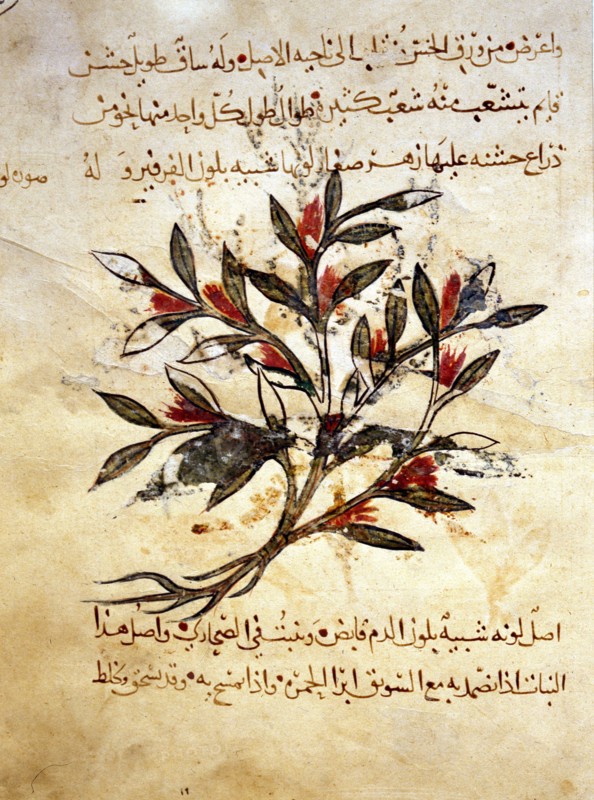 واعرض من ورق الخس الى ناحيه الاصل وله ساق طويل خشن
قايم يتشعب منه شعب كثيره طوال طول كل واحد منها نحو من
ذراع خشنه عليها زهر صغار لونها شبيه بلون الفرفير وله
اصل لونه شبيه بلون الدم قابض وينبت في الصحاري واصل هذا
النبات اذا تضمد به مع السويق ابرا الحمره واذا تمسح به وقد سحق وخلط